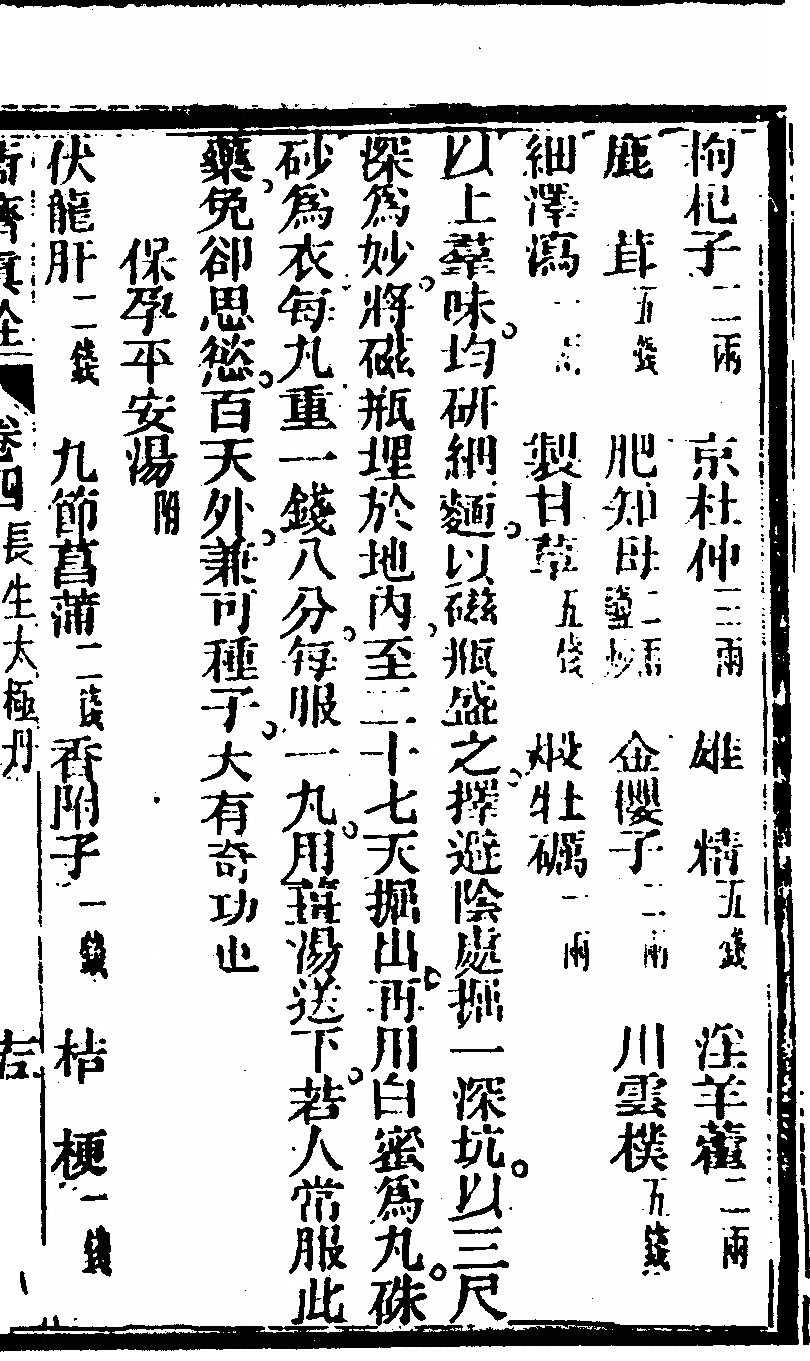 枸杞子二兩　京杜仲三兩　雄精五錢　淫羊藿二兩
鹿茸五錢　肥知母二兩鹽炒　金櫻子二兩　川雲樸五錢
細澤瀉一兩　製甘草五錢　煅牡礪一兩
以上羣味。均研細麵。以磁瓶盛之。擇避陰處掘一深坑。以三尺
深爲妙。將磁瓶埋於地內。至二十七天掘出。再用白蜜爲丸。硃
砂爲衣。每丸重一錢八分。每服一丸。用薑湯送下。若人常服此
藥。免卻思慾。百天外。兼可種子。大有奇功也
保孕平安湯附
伏龍肝二錢　九節菖蒲二錢　香附子一錢　桔梗一錢
卷四　長生太極丹